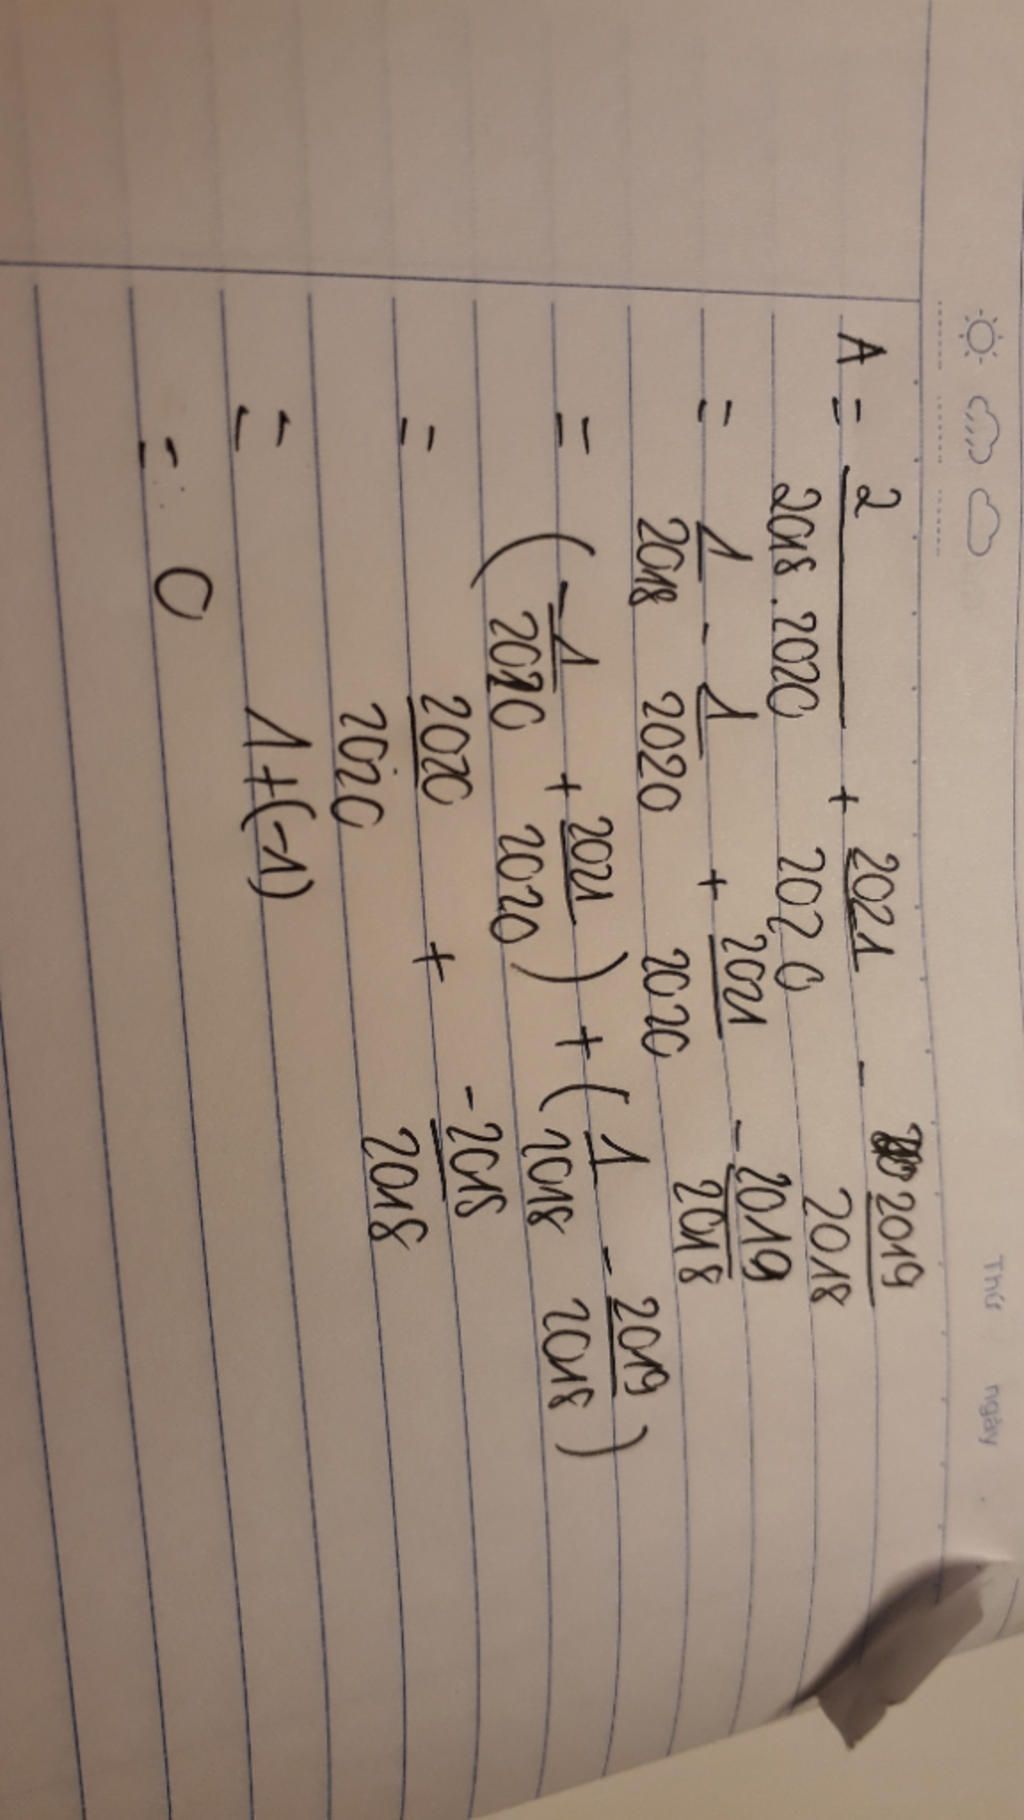 Thứ ngày
A = 2/(2018 . 2020) + 2021/2020 - 2019/2018
= 1/2018 - 1/2020 + 2021/2020 - 2019/2018
= (-1/2020 + 2021/2020) + (1/2018 - 2019/2018)
= 2020/2020 + -2018/2018
= 1+(-1)
= 0